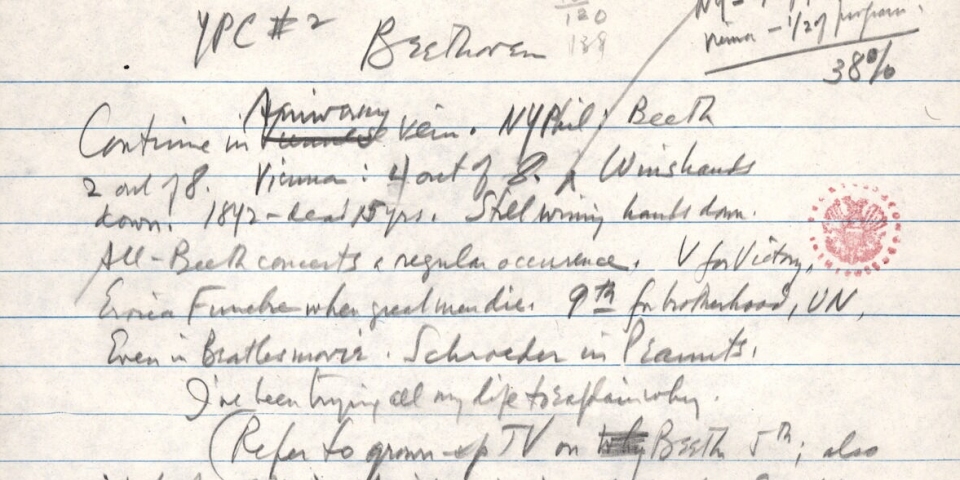 YPC #2
Beethoven
120
NY -
Vienna - 1/2 of program.
38%
Anniversary
Continue in vein. NYPhil: Beeth
2 out of 8. Vienna: 4 out of 8. Wins hands
down! 1842 - dead 15 yrs. Still wining hands down.
All-Beeth concerts a regular occurence. V for Victory,
Eroica Funebre when great men die. 9th for brotherhood, UN,
Even in Beatles movie. Schroeder in Peanuts.
I've been trying all my life to explain why.
(Refer to grown-up TV on Beeth 5th; also